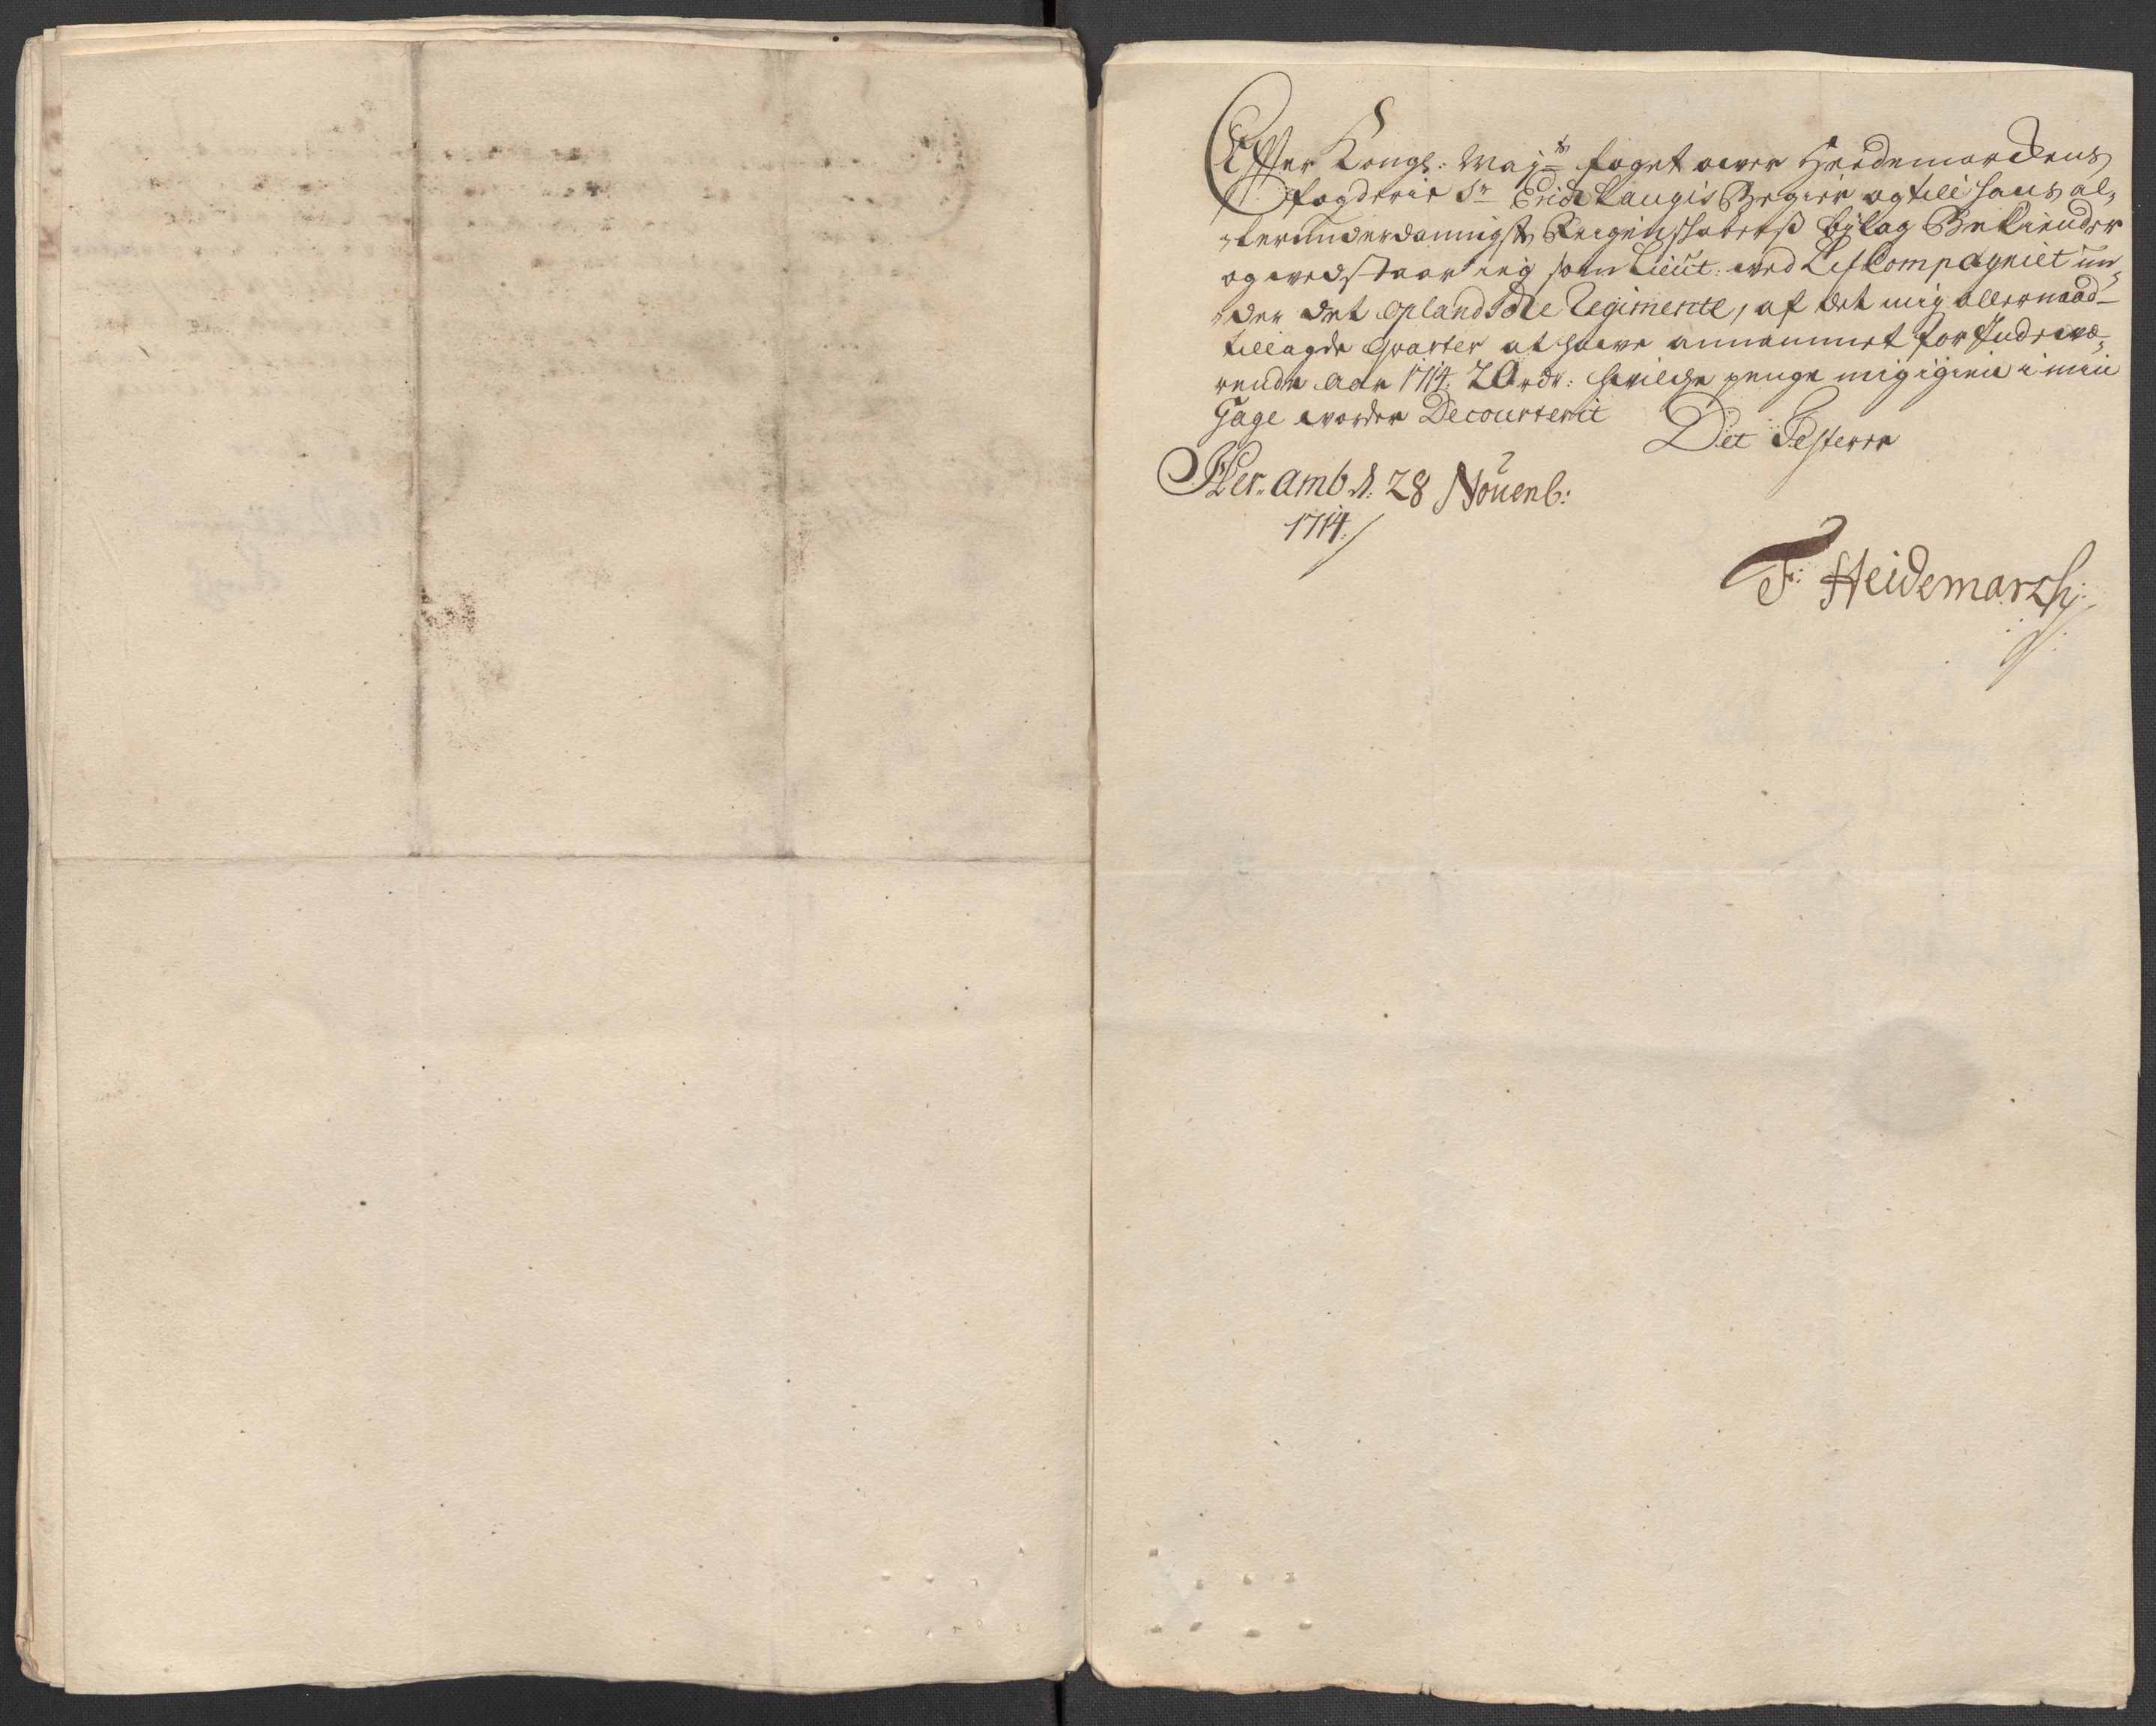 Effter Kongl: Maj:ts foget ower Hedemarckens
fogderie Sr Erich Laugis Begier og till hans al-
lerunderdannigste Reigenskabers bÿlag Bekiender
og wedstaar ieg som Lieüt: wed LifCompagniet un-
der det Oplandsche Regimente, af det mig allernaad-
tillagde Qvarter at hawe annammet for Inde wæ-
rende Aar 1714. 20 rdr: hwilche penge mig igien i min
Gage worder Decourterit Det Testerer
Her.. Amb d: 28 Nouenb:
1714./
F: Heidemarch